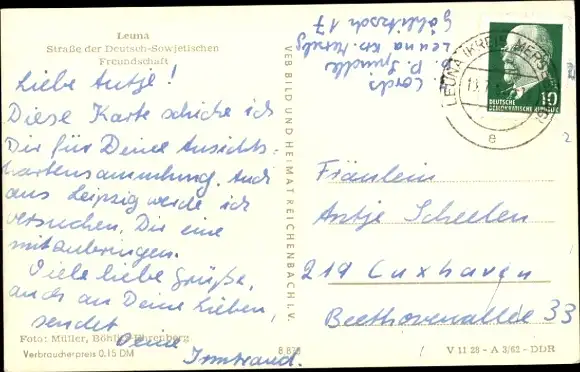 Leuna
Straße der Deutsch-Sowjetischen
Freundschaft
Liebe Antje!
Diese Karte schicke ich
Dir für Deine Ansichts-
kartensammlung. Auch
aus Leipzig werde ich
versuchen, Dir eine
mitzubringen.
Viele liebe Grüße,
auch an Deine Lieben,
sendet
Deine
Irmtraud.
Foto: Müller, Böhlitz-Ehrenberg
Verbraucherpreis 0.15 DM
B 878
VEB BILD UND HEIMAT REICHENBACH I. V.
Cords
P. Spindler
Leuna Krs. Merseb
17
LEUNA (KREIS MERSEBURG)
e
DEUTSCHE
DEMOKRATISCHE REPUBLIK
10
2
Fräulein
Antje Scheelen
219 Cuxhaven
Beethovenallee 33
V 11 28 - A 3/62 - DDR